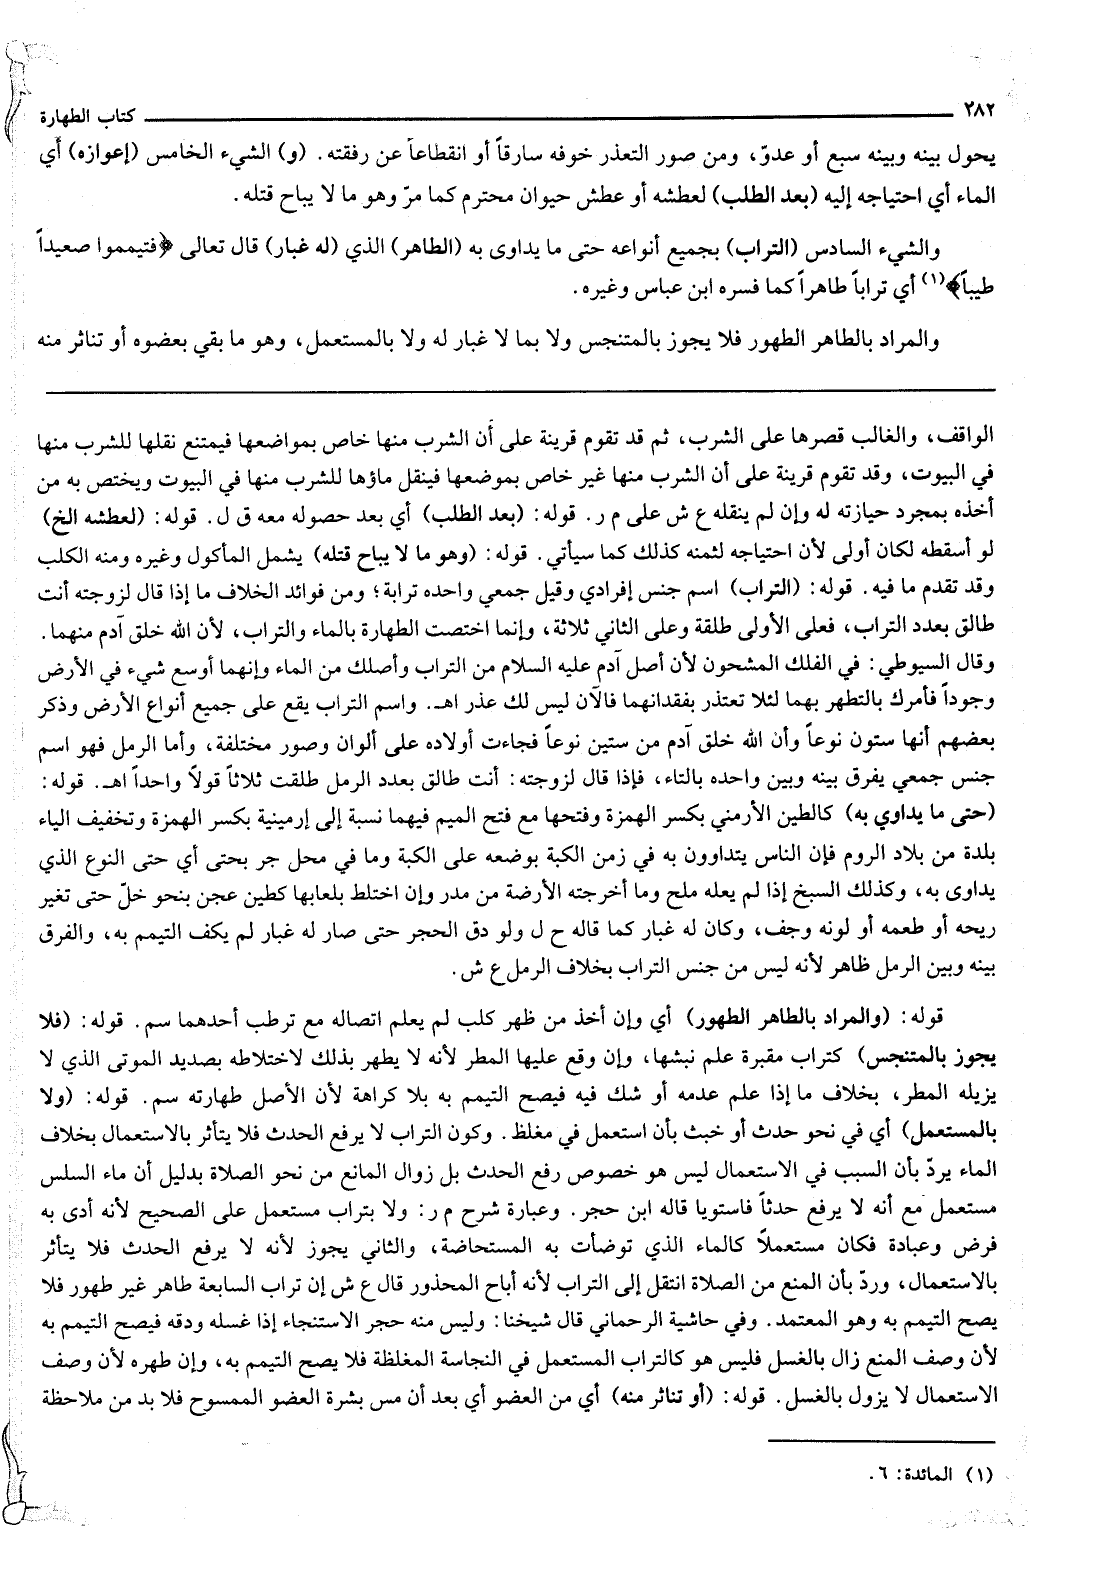 ٢٨٢ كتاب الطهارة
يحول بينه وبينه سبع أو عدوّ، ومن صور التعذر خوفه سارقاً أو انقطاعاً عن رفقته. (و) الشيء الخامس (إعوازه) أي
الماء أي احتياجه إليه (بعد الطلب) لعطشه أو عطش حيوان محترم كما مرّ وهو ما لا يباح قتله.
والشيء السادس (التراب) بجميع أنواعه حتى ما يداوى به (الطاهر) الذي (له غبار) قال تعالى ﴿فتيمموا صعيداً
طيباً﴾(١) أي تراباً طاهراً كما فسره ابن عباس وغيره.
والمراد بالطاهر الطهور فلا يجوز بالمتنجس ولا بما لا غبار له ولا بالمستعمل، وهو ما بقي بعضوه أو تناثر منه
الواقف، والغالب قصرها على الشرب، ثم قد تقوم قرينة على أن الشرب منها خاص بمواضعها فيمتنع نقلها للشرب منها
في البيوت، وقد تقوم قرينة على أن الشرب منها غير خاص بموضعها فينقل ماؤها للشرب منها في البيوت ويختص به من
أخذه بمجرد حيازته له وإن لم ينقله ع ش على م ر. قوله: (بعد الطلب) أي بعد حصوله معه ق ل. قوله: (لعطشه الخ)
لو أسقطه لكان أولى لأن احتياجه لثمنه كذلك كما سيأتي. قوله: (وهو ما لا يباح قتله) يشمل المأكول وغيره ومنه الكلب
وقد تقدم ما فيه. قوله: (التراب) اسم جنس إفرادي وقيل جمعي واحده ترابة؛ ومن فوائد الخلاف ما إذا قال لزوجته أنت
طالق بعدد التراب، فعلى الأولى طلقة وعلى الثاني ثلاثة، وإنما اختصت الطهارة بالماء والتراب، لأن الله خلق آدم منهما.
وقال السيوطي: في الفلك المشحون لأن أصل آدم عليه السلام من التراب وأصلك من الماء وإنهما أوسع شيء في الأرض
وجوداً فأمرك بالتطهر بهما لئلا تعتذر بفقدانهما فالآن ليس لك عذر اهـ. واسم التراب يقع على جميع أنواع الأرض وذكر
بعضهم أنها ستون نوعاً وأن الله خلق آدم من ستين نوعاً فجاءت أولاده على ألوان وصور مختلفة، وأما الرمل فهو اسم
جنس جمعي يفرق بينه وبين واحده بالتاء، فإذا قال لزوجته: أنت طالق بعدد الرمل طلقت ثلاثاً قولاً واحداً اهـ. قوله:
(حتى ما يداوي به) كالطين الأرمني بكسر الهمزة وفتحها مع فتح الميم فيهما نسبة إلى إرمينية بكسر الهمزة وتخفيف الياء
بلدة من بلاد الروم فإن الناس يتداوون به في زمن الكبة بوضعه على الكبة وما في محل جر بحتى أي حتى النوع الذي
يداوى به، وكذلك السبخ إذا لم يعله ملح وما أخرجته الأرضة من مدر وإن اختلط بلعابها كطين عجن بنحو خلّ حتى تغير
ريحه أو طعمه أو لونه وجف، وكان له غبار كما قاله ح ل ولو دق الحجر حتى صار له غبار لم يكف التيمم به، والفرق
بينه وبين الرمل ظاهر لأنه ليس من جنس التراب بخلاف الرمل ع ش.
قوله: (والمراد بالطاهر الطهور) أي وإن أخذ من ظهر كلب لم يعلم اتصاله مع ترطب أحدهما سم. قوله: (فلا
يجوز بالمتنجس) كتراب مقبرة علم نبشها، وإن وقع عليها المطر لأنه لا يطهر بذلك لاختلاطه بصديد الموتى الذي لا
يزيله المطر، بخلاف ما إذا علم عدمه أو شك فيه فيصح التيمم به بلا كراهة لأن الأصل طهارته سم. قوله: (ولا
بالمستعمل) أي في نحو حدث أو خبث بأن استعمل في مغلظ. وكون التراب لا يرفع الحدث فلا يتأثر بالاستعمال بخلاف
الماء يردّ بأن السبب في الاستعمال ليس هو خصوص رفع الحدث بل زوال المانع من نحو الصلاة بدليل أن ماء السلس
مستعمل مع أنه لا يرفع حدثاً فاستويا قاله ابن حجر. وعبارة شرح م ر: ولا بتراب مستعمل على الصحيح لأنه أدى به
فرض وعبادة فكان مستعملاً كالماء الذي توضأت به المستحاضة، والثاني يجوز لأنه لا يرفع الحدث فلا يتأثر
بالاستعمال، وردّ بأن المنع من الصلاة انتقل إلى التراب لأنه أباح المحذور قال ع ش إن تراب السابعة طاهر غير طهور فلا
يصح التيمم به وهو المعتمد. وفي حاشية الرحماني قال شيخنا: وليس منه حجر الاستنجاء إذا غسله ودقه فيصح التيمم به
لأن وصف المنع زال بالغسل فليس هو كالتراب المستعمل في النجاسة المغلظة فلا يصح التيمم به، وإن طهره لأن وصف
الاستعمال لا يزول بالغسل. قوله: (أو تناثر منه) أي من العضو أي بعد أن مس بشرة العضو الممسوح فلا بد من ملاحظة
(١) المائدة: ٦.